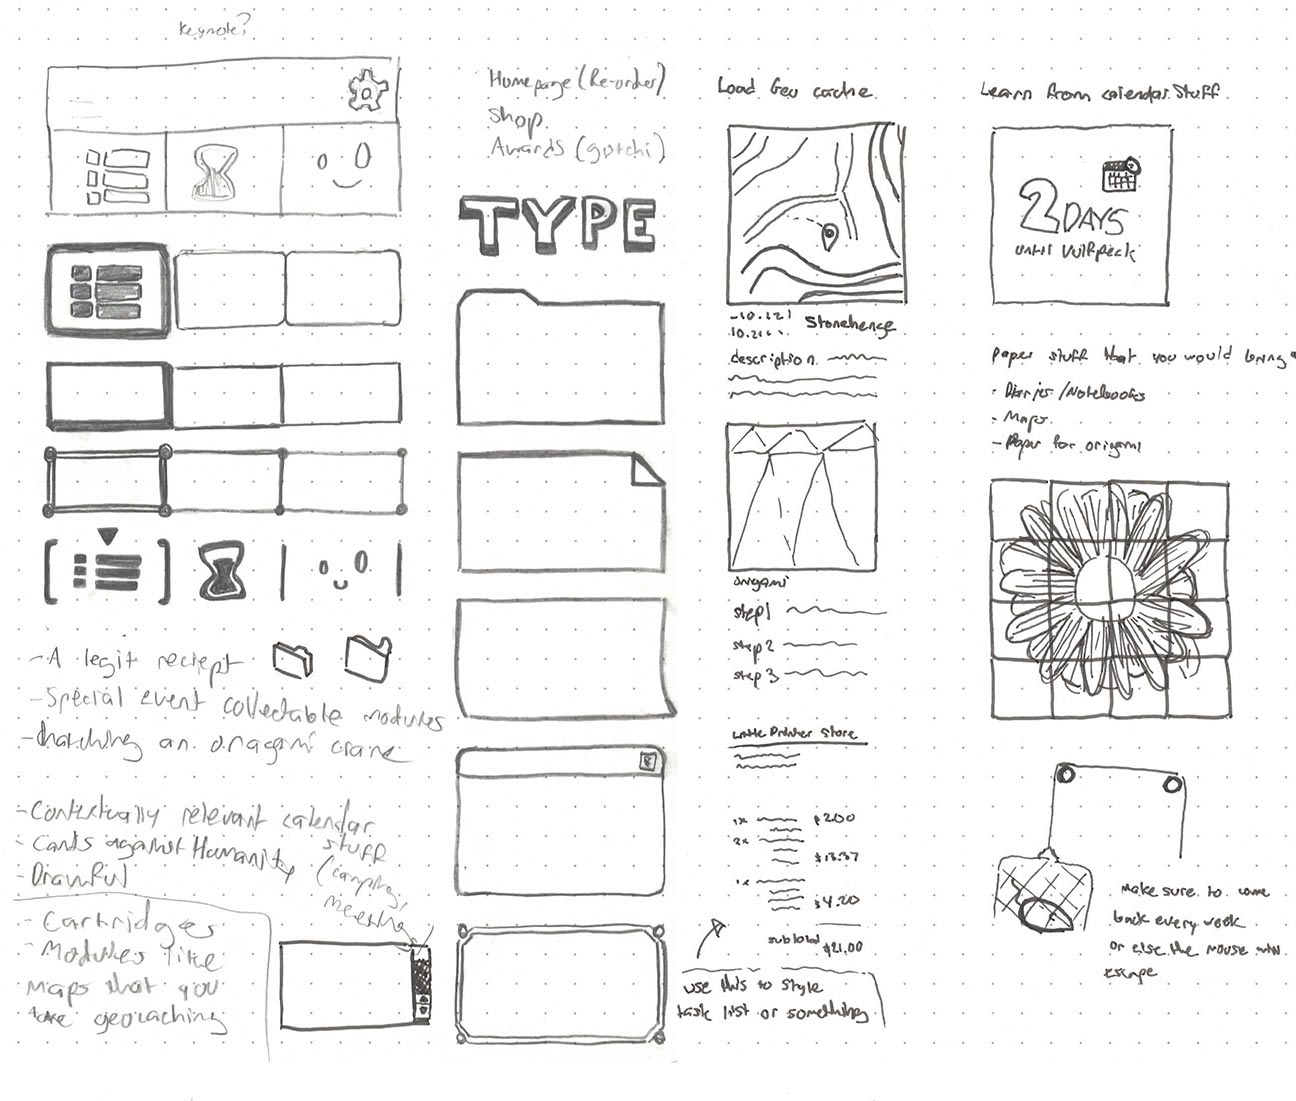 Keynote?
Homepage (Re-order)
Shop
Awards (gotchi)
TYPE
- A legit reciept
- Special event collectable modules
- Hatching an oragami crane
- Contextually relevant calendar
stuff
(camping,
meeting
- Cards against Humanity
- Drawful
- Cartridges
- Modules like
maps that you
take geocaching
Load Geo cache
-10.121
10.21
Stonehenge
description
origami
step 1
step 2
step 3
Little Printer Store
1x $2.00
2x
$13.37
1x
$4.20
subtotal $21.00
use this to style
task list or something
Learn from calendar stuff
2 DAYS
until Vulfpeck
Paper stuff that you would bring
- Diaries/Notebooks
- Maps
- Paper for origami
Make sure to come
back every week
or else the mouse will
escape